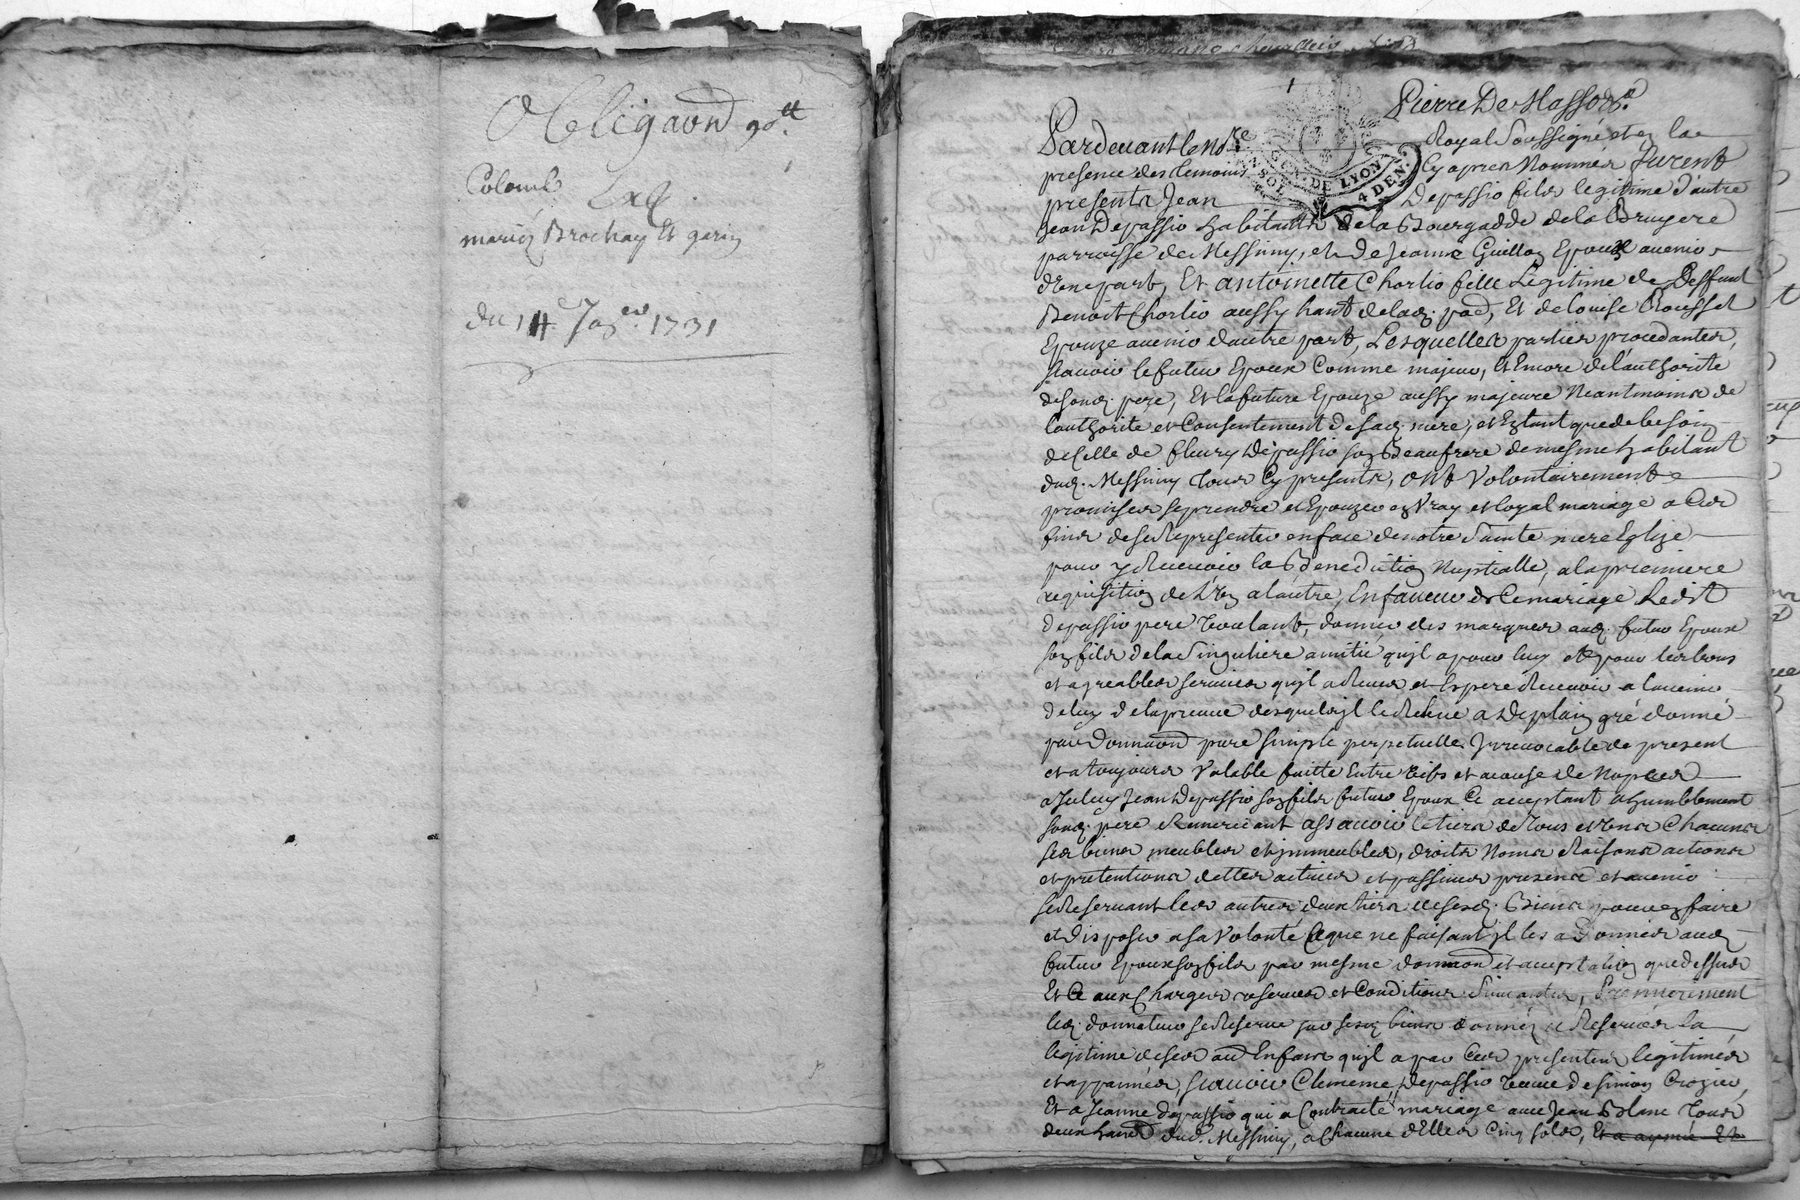 Obligaōn 90.tt
Colomb
Exp
mariéz Brochay Et gerin
du 14.e Jan.er 1731
Pierre De Massod
Pardevant le No.re Royal Soussigné et en la
GEN. DE LYON
SOL 4 DEN.
presence des temoins Cy apres Nommés furent
presents Jean Depassio fils legitime d'autre
Jean Depassio habitants de la Bourgadde de la Bruyere
parroisse de Messimy, et de Jeanne Guillon Epoux avenir
d'une part, Et antoinette Chorlio fille Legitime de Deffunt
Benoit Chorlio aussy hant de lad. par., Et de Louise Rousset
Epouze avenir d'autre part, Lesquelles parties procedantes,
sçavoir le futur Epoux Comme majeur, Et Encore de l'authorité
de sond. pere, Et la future Epouze aussy majeure Neantmoins de
l'authorité et Consentement de sad. mere, et En tant que de besoin
de Celle de fleury Depassio son Beaufrere demesme habitant
dud. Messimy tous Cy presents, ont Volontairement
promis se prendre et Epouzer en Vray et loyal mariage a Ces
fins de se Representer en face de notre Sainte mere Eglize
pour y Recevoir la Benediction Nuptialle, a la premiere
requisition de L'un a l'autre, En faveur de Ce mariage Ledit
Depassio pere Voulant, donner des marques aud. futur Epoux
son fils de la Singuliere amitié qu'il a pour luy et pour les bons
et agreables services qu'il a Receus et Espere Recevoir a l'avenir
de luy de la preuve desquels il le Releve a De plain gré donné
par donnaōn pure simple perpetuelle Irrevocable de present
et a toujours Valable faitte Entre vifs et acause de Nopces
a Iceluy Jean Depassio son fils futur Epoux Ce acceptant a humblement
sond. pere Remerciant assavoir le tiers de tous et uns Chacuns
ses biens meubles et immeubles, droits Noms Raisons actions
et pretentions dettes actives et passives presens et avenir
se Reservant les autres deux tiers de sesd. Biens pour en faire
et disposer a sa Volonté Ce que ne faisant il les a Donnés aud.
futur Epoux son fils par mesme donnaōn et acceptation que dessus
Et Ce aux Charges reserves et Conditions Suivantes, Premierement
led. donnateur se Reserve sur sesd. biens donnés et Reservés la
legitime de ses Enfans qu'il a par Ces presentes legitimés
et appannés, sçavoir Clemence Depassio veuve de simon Crozier,
Et a Jeanne Depassio qui a Contracté mariage avec Jean Blanc tous
deux hants dud. Messimy, a Chacune d'Elles Cinq sols,